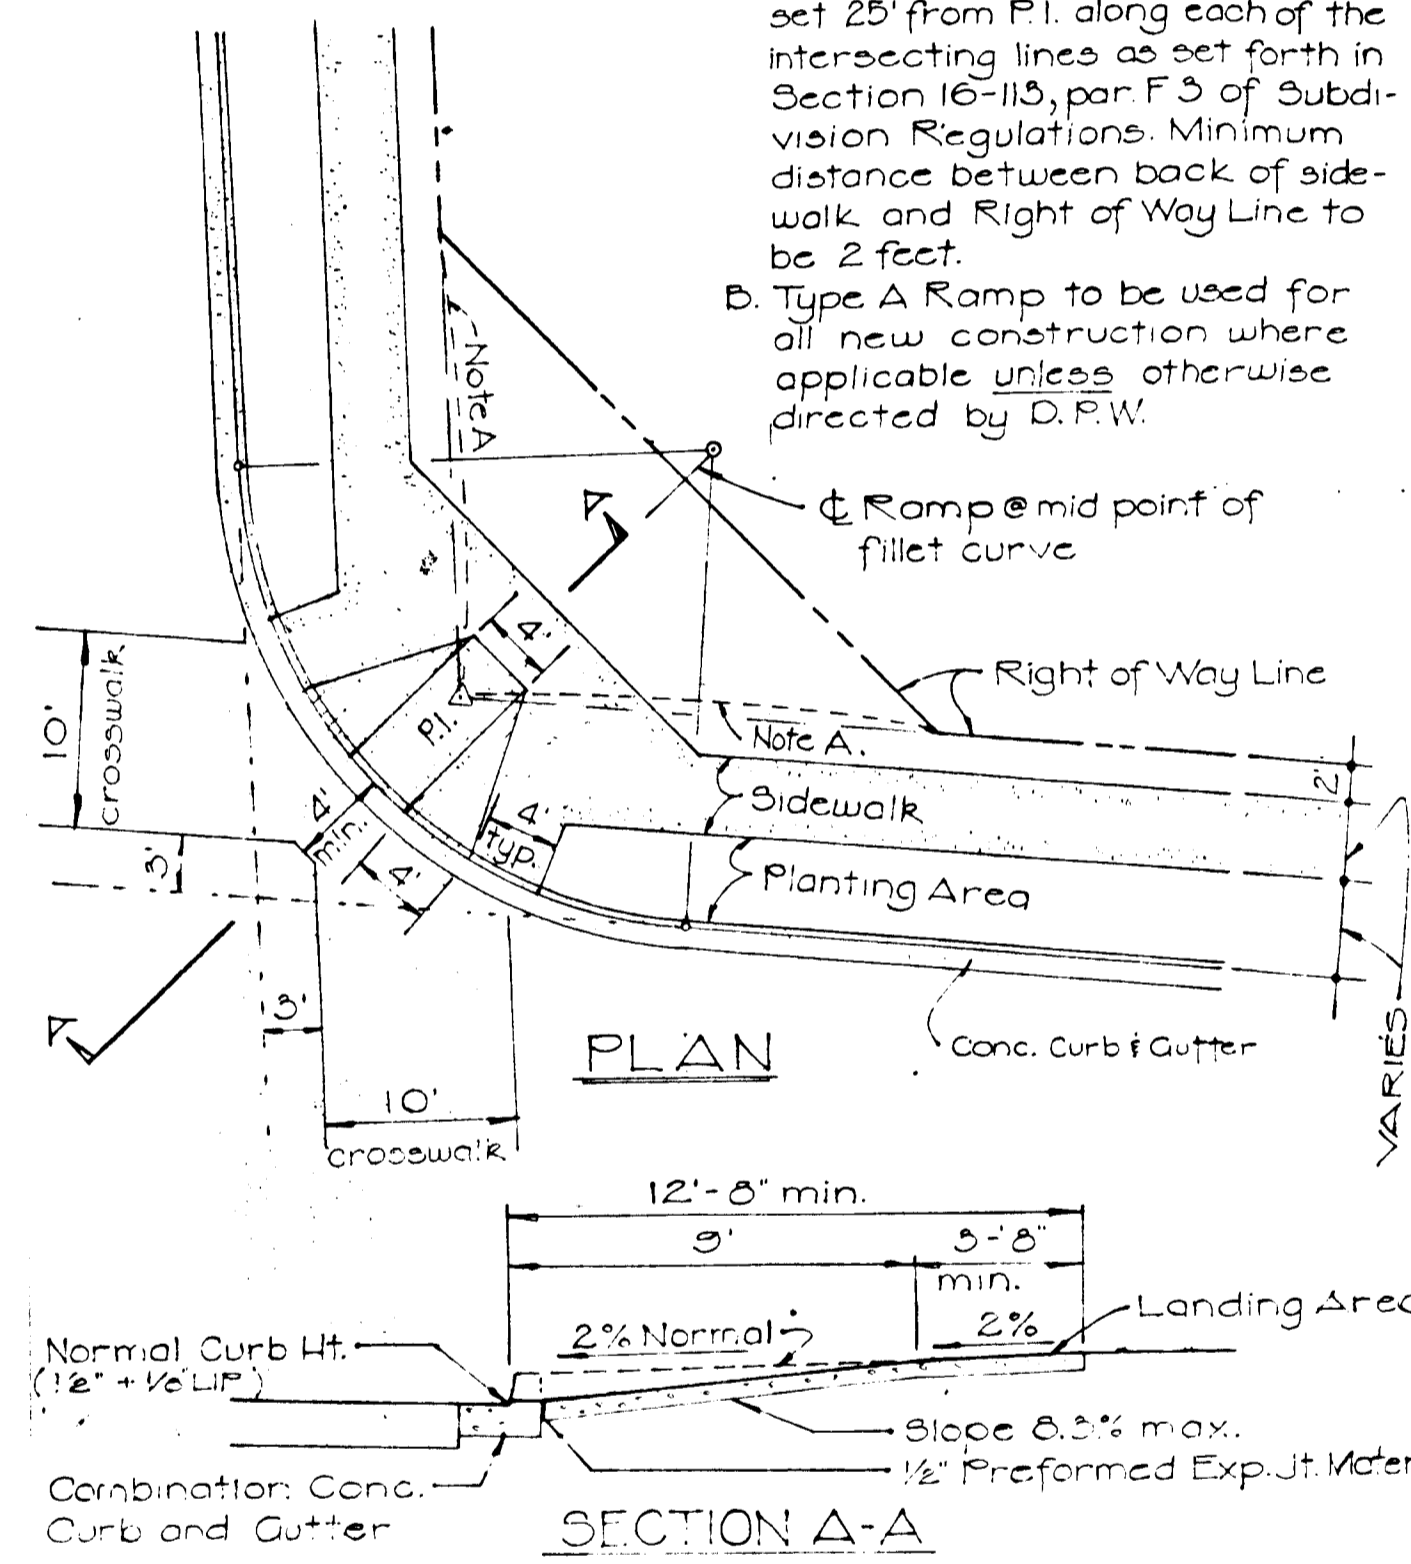 set 25' from P.I. along each of the
intersecting lines as set forth in
Section 16-113, par. F 3 of Subdi-
vision Regulations. Minimum
distance between back of side-
walk and Right of Way Line to
be 2 feet.
B. Type A Ramp to be used for
all new construction where
applicable unless otherwise
directed by D.P.W.
Note A
A
℄ Ramp @ mid point of
fillet curve
4'
Right of Way Line
10'
crosswalk
P.I.
Note A.
2'
Sidewalk
4'
min.
4'
typ.
3'
4'
Planting Area
VARIES
A
3'
PLAN
Conc. Curb & Gutter
10'
crosswalk
12'-8" min.
9'
3'-8"
min.
Landing Area
2% Normal
2%
Normal Curb Ht.
(1/2" + 1/8" LIP)
Slope 8.3% max.
1/2" Preformed Exp. Jt. Mater
Combination Conc.
Curb and Gutter
SECTION A-A